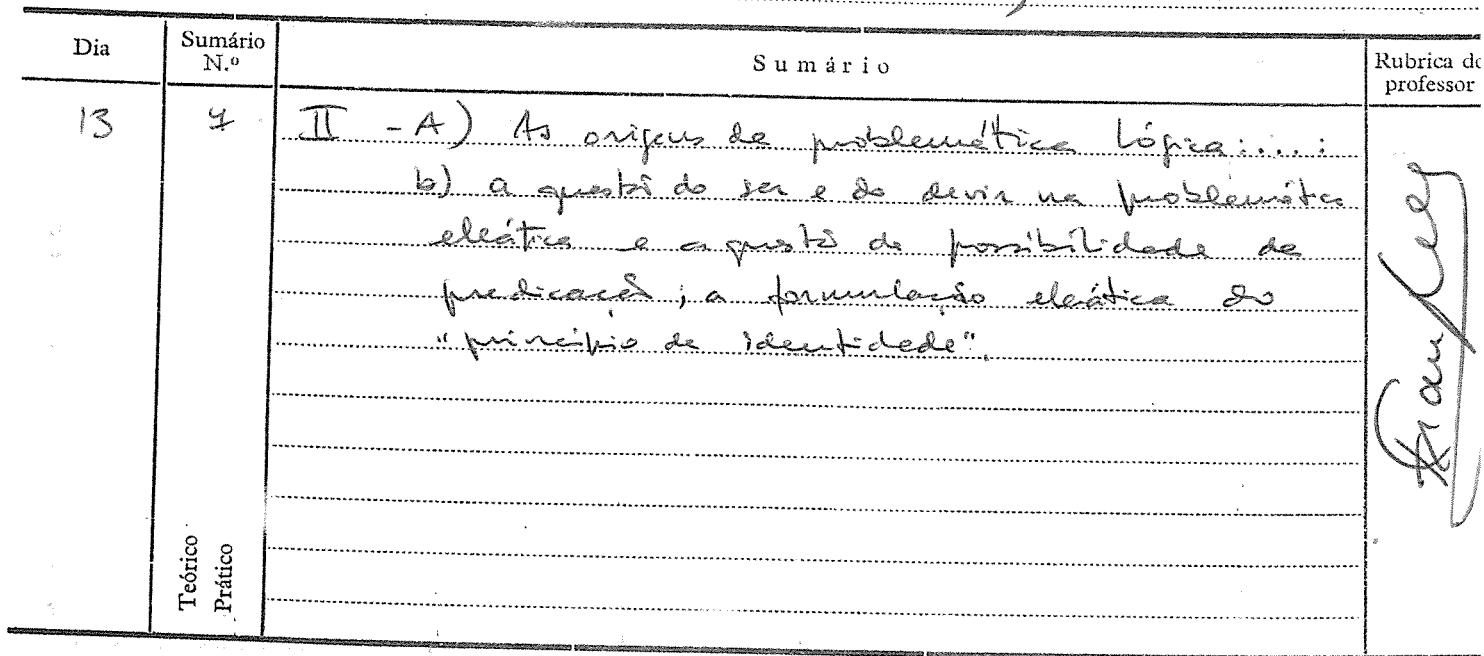 Dia Sumário N.º Sumário Rubrica do professor
13
II - A) As origens da problemática Lógica:...:
b) a questão do ser e do devir na problemática
eleática e a questão da possibilidade da
predicação; a formulação eleática do
"princípio de identidade".
Teórico
Prático